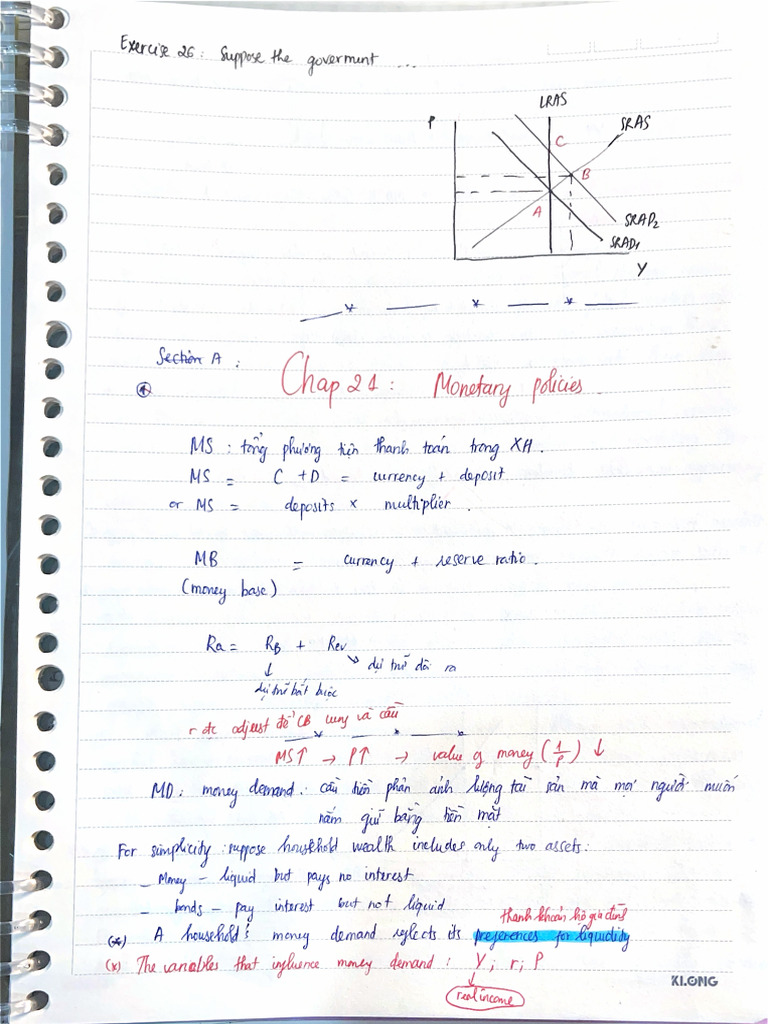 Exercise 26: Suppose the goverment ...
LRAS
P
SRAS
C
B
A
SRAD2
SRAD1
Y
Section A :
Chap 21 : Monetary policies
MS : tổng phương tiện thanh toán trong XH.
MS = C + D = currency + deposit
or MS = deposits × multiplier.
MB = currency + reserve ratio.
(money base)
Ra = RB + Rev
↓ ↘ dự trữ dôi ra
dự trữ bắt buộc
r đc adjust để CB cung và cầu
MS↑ → P↑ → value of money (1/P) ↓
MD : money demand : cầu tiền phản ánh lượng tài sản mà mọi người muốn
nắm giữ bằng tiền mặt
For simplicity : suppose household wealth includes only two assets:
- Money - liquid but pays no interest
- bonds - pay interest but not liquid
thanh khoản hộ gia đình
(*) A household's money demand reflects its preferences for liquidity
(*) The variables that influence money demand : Y ; r ; P
↓
real income
KLONG